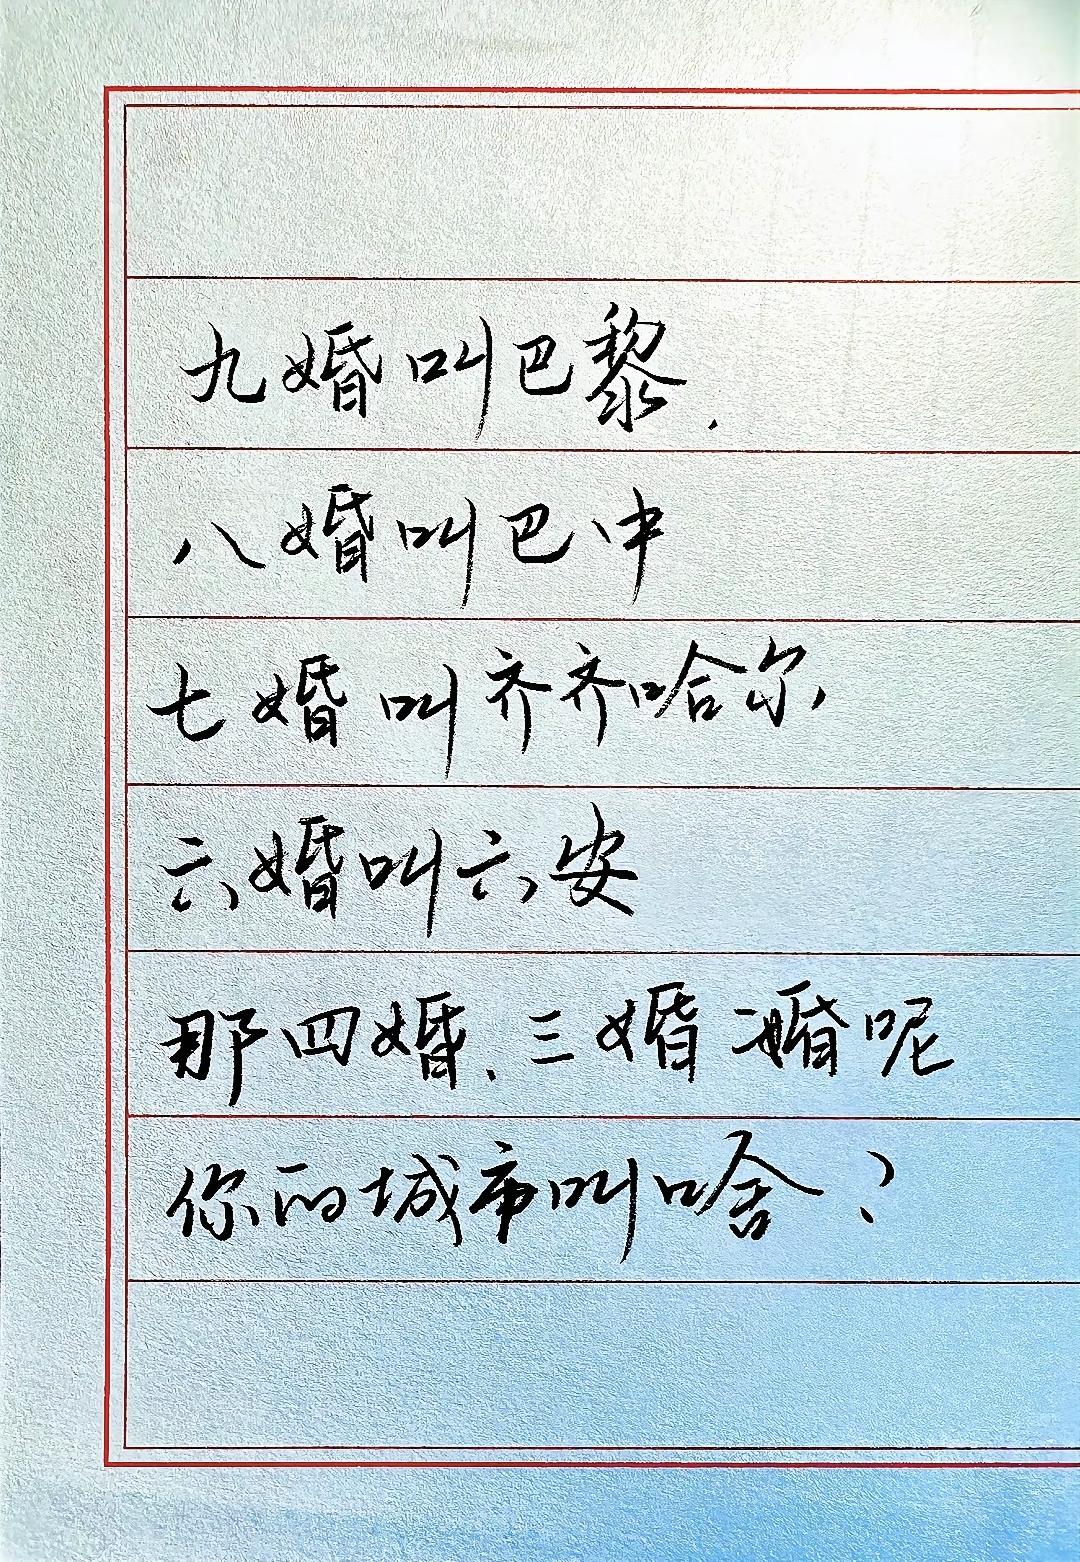 九婚叫巴黎.
八婚叫巴中
七婚叫齐齐哈尔
六婚叫六安
那四婚、三婚二婚呢
你的城市叫啥?